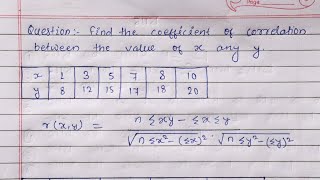 Question:- Find the coefficient of correlation
between the value of x any y.
x 1 3 5 7 8 10
y 8 12 15 17 18 20
r(x,y) = n Σxy - Σx Σy / √n Σx² - (Σx)² · √n Σy² - (Σy)²